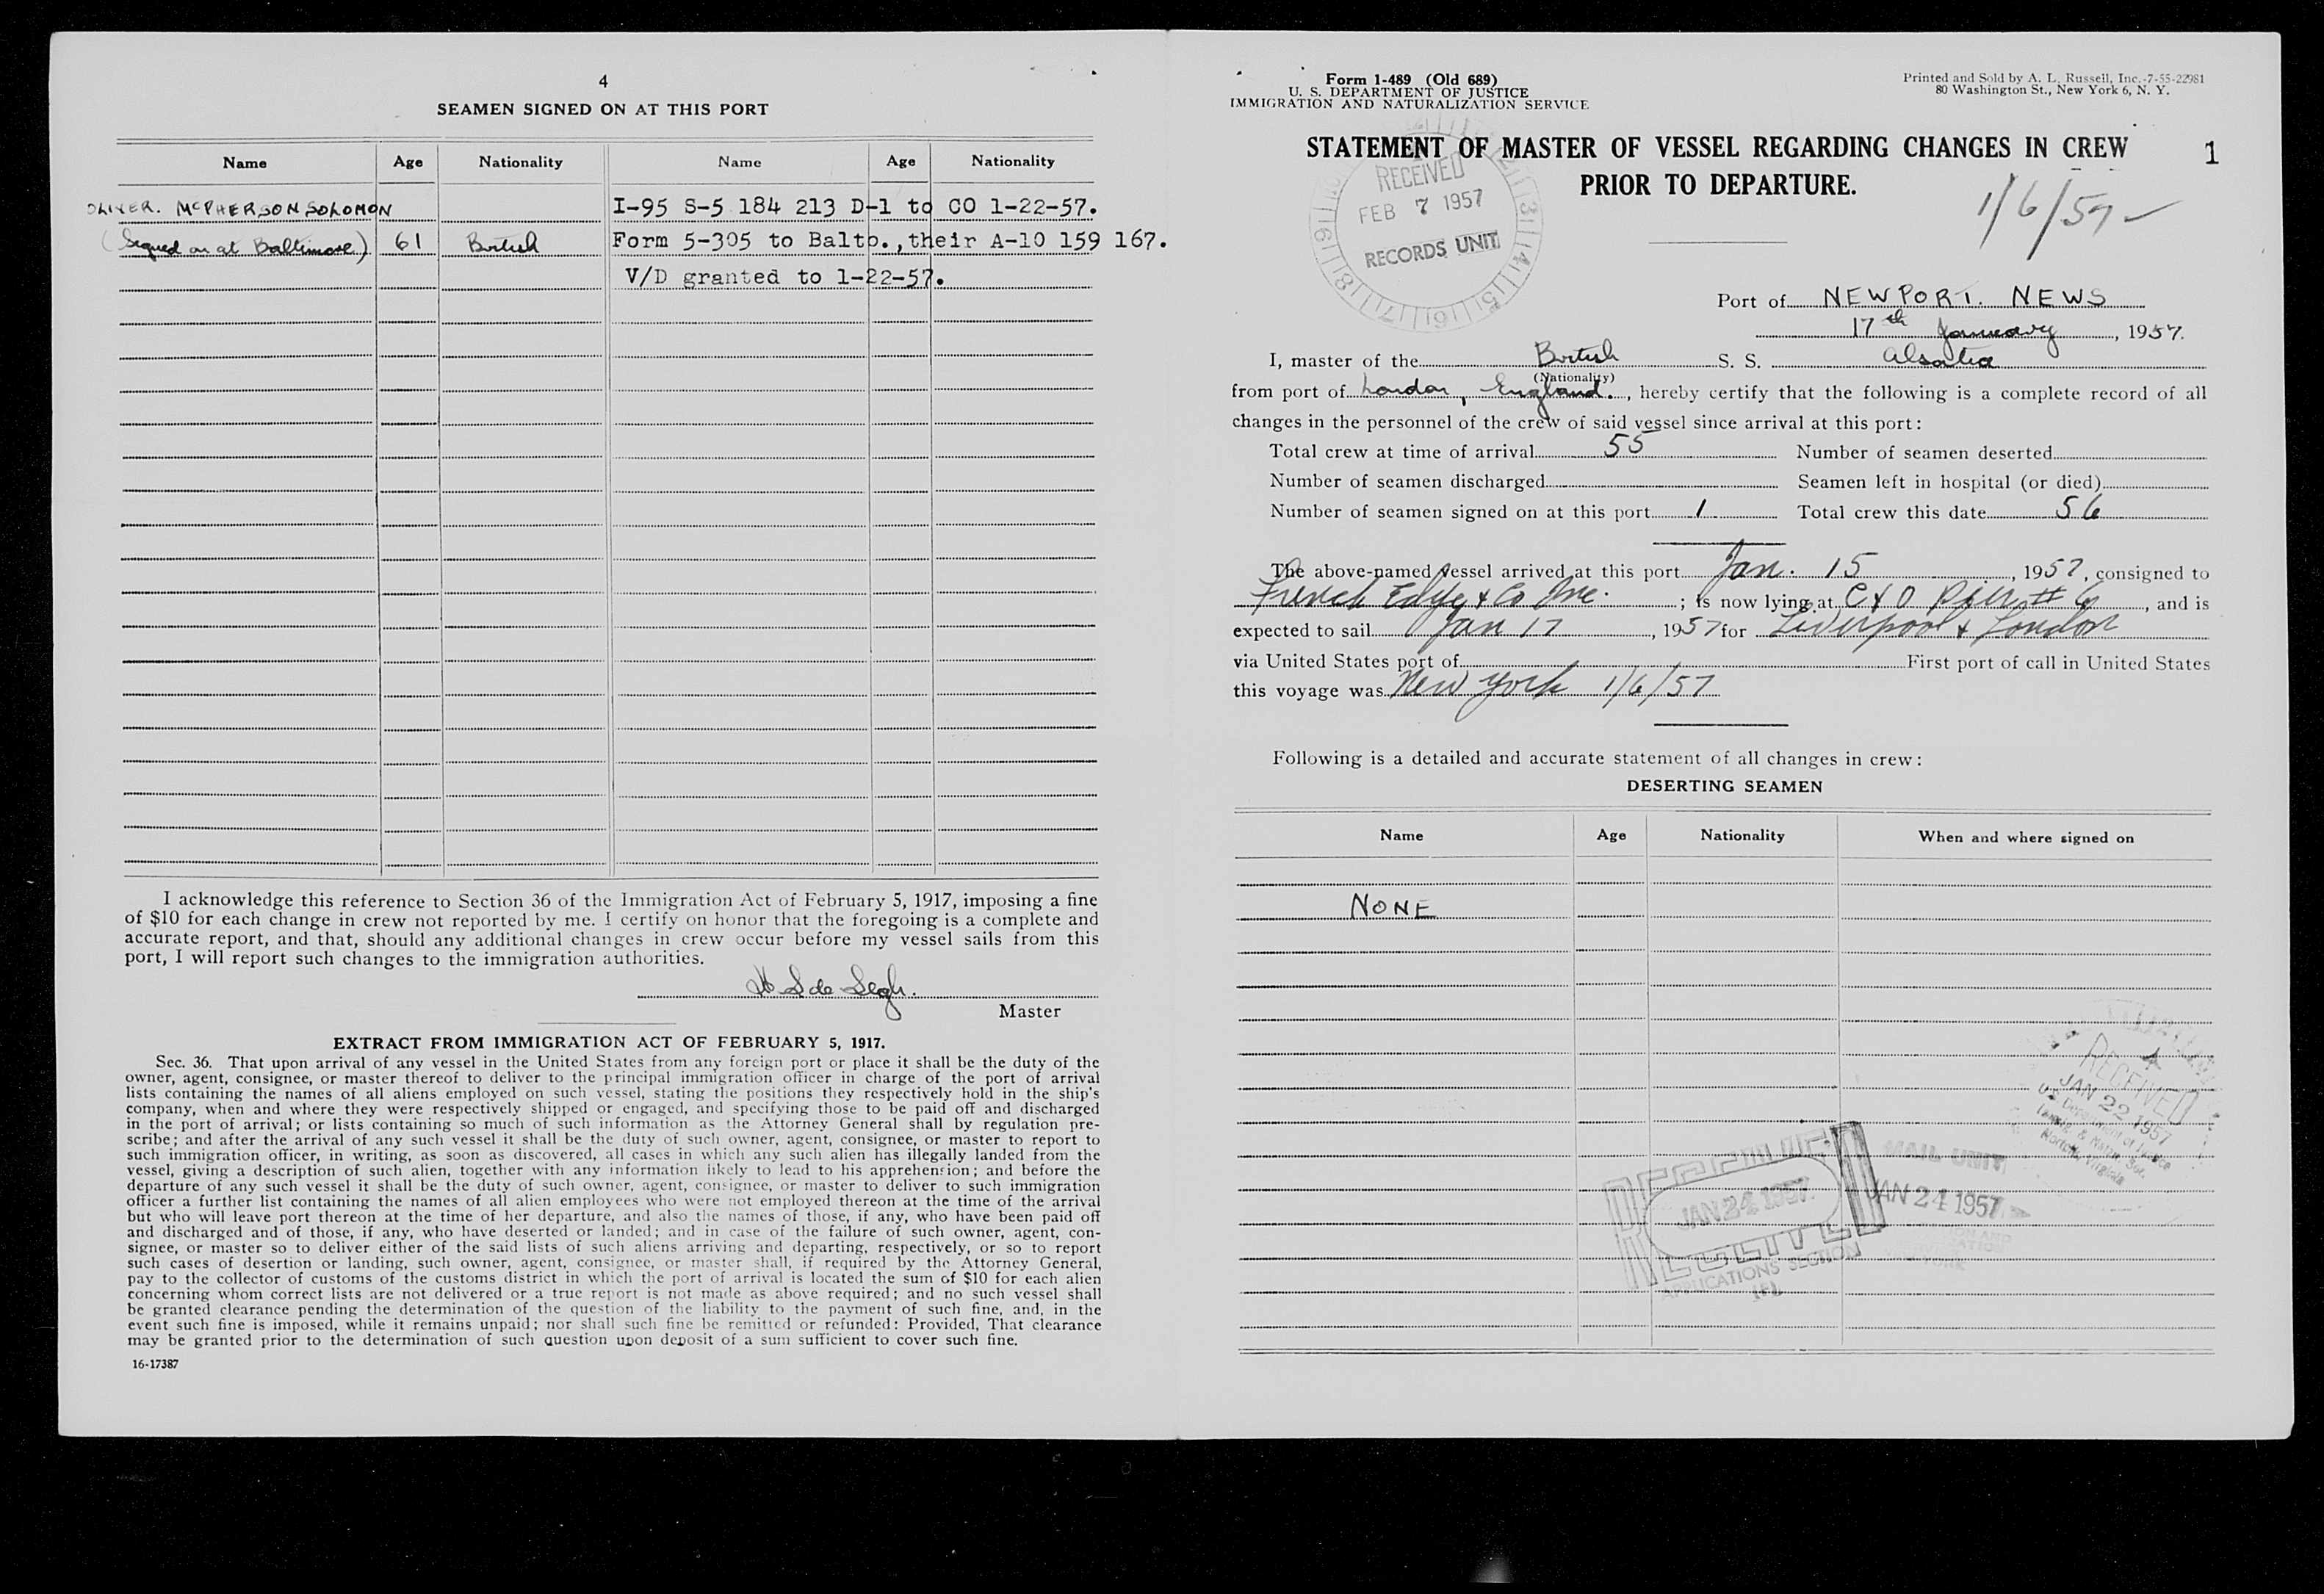 4
SEAMEN SIGNED ON AT THIS PORT
Name Age Nationality Name Age Nationality
OLIVER. McPHERSON SOLOMON I-95 S-5 184 213 D-1 to CO 1-22-57.
(Signed on at Baltimore) 61 British Form 5-305 to Balto., their A-10 159 167.
V/D granted to 1-22-57.
I acknowledge this reference to Section 36 of the Immigration Act of February 5, 1917, imposing a fine
of $10 for each change in crew not reported by me. I certify on honor that the foregoing is a complete and
accurate report, and that, should any additional changes in crew occur before my vessel sails from this
port, I will report such changes to the immigration authorities.
Master
EXTRACT FROM IMMIGRATION ACT OF FEBRUARY 5, 1917.
Sec. 36. That upon arrival of any vessel in the United States from any foreign port or place it shall be the duty of the
owner, agent, consignee, or master thereof to deliver to the principal immigration officer in charge of the port of arrival
lists containing the names of all aliens employed on such vessel, stating the positions they respectively hold in the ship's
company, when and where they were respectively shipped or engaged, and specifying those to be paid off and discharged
in the port of arrival; or lists containing so much of such information as the Attorney General shall by regulation pre-
scribe; and after the arrival of any such vessel it shall be the duty of such owner, agent, consignee, or master to report to
such immigration officer, in writing, as soon as discovered, all cases in which any such alien has illegally landed from the
vessel, giving a description of such alien, together with any information likely to lead to his apprehension; and before the
departure of any such vessel it shall be the duty of such owner, agent, consignee, or master to deliver to such immigration
officer a further list containing the names of all alien employees who were not employed thereon at the time of the arrival
but who will leave port thereon at the time of her departure, and also the names of those, if any, who have been paid off
and discharged and of those, if any, who have deserted or landed; and in case of the failure of such owner, agent, con-
signee, or master so to deliver either of the said lists of such aliens arriving and departing, respectively, or so to report
such cases of desertion or landing, such owner, agent, consignee, or master shall, if required by the Attorney General,
pay to the collector of customs of the customs district in which the port of arrival is located the sum of $10 for each alien
concerning whom correct lists are not delivered or a true report is not made as above required; and no such vessel shall
be granted clearance pending the determination of the question of the liability to the payment of such fine, and, in the
event such fine is imposed, while it remains unpaid; nor shall such fine be remitted or refunded: Provided, That clearance
may be granted prior to the determination of such question upon deposit of a sum sufficient to cover such fine.
16-17387
Form 1-489 (Old 689)
U. S. DEPARTMENT OF JUSTICE
IMMIGRATION AND NATURALIZATION SERVICE
Printed and Sold by A. L. Russell, Inc.-7-55-22981
80 Washington St., New York 6, N. Y.
STATEMENT OF MASTER OF VESSEL REGARDING CHANGES IN CREW 1
PRIOR TO DEPARTURE.
1/6/57
RECEIVED
FEB 7 1957
RECORDS UNIT
Port of NEWPORT. NEWS
17th January, 1957.
I, master of the British S. S. Alsatia
(Nationality)
from port of London, England., hereby certify that the following is a complete record of all
changes in the personnel of the crew of said vessel since arrival at this port:
Total crew at time of arrival 55 Number of seamen deserted
Number of seamen discharged Seamen left in hospital (or died)
Number of seamen signed on at this port 1 Total crew this date 56
The above-named vessel arrived at this port Jan. 15, 1957, consigned to
French Edye & Co Inc.; is now lying at C & O Pier # 6, and is
expected to sail Jan 17, 1957 for Liverpool & London
via United States port of First port of call in United States
this voyage was New York 1/6/57
Following is a detailed and accurate statement of all changes in crew:
DESERTING SEAMEN
Name Age Nationality When and where signed on
NONE
RECEIVED
JAN 22 1957
U.S. Department of Justice
Norfolk, Virginia
RECEIVED
JAN 24 1957
APPLICATIONS SECTION
MAIL UNIT
JAN 24 1957